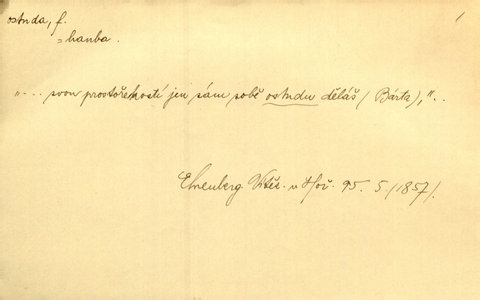 ostuda, f.
= hanba.
"... svou prostořekostí jen sám sobě ostudu děláš (Bárta), "..
Ehrenberg Vítěz. v Hoř. 95. 5. (1857).